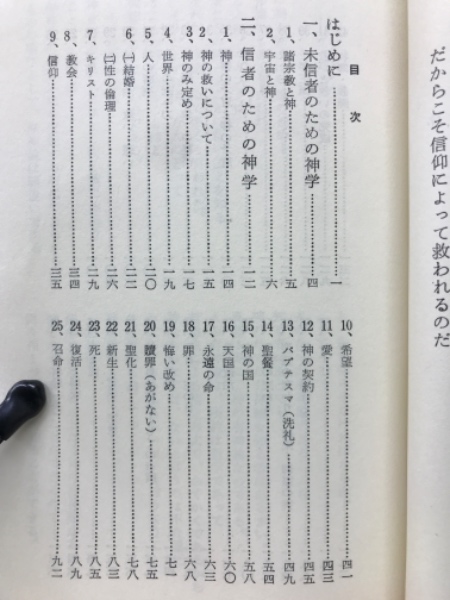 だからこそ信仰によって救われるのだ
目次
はじめに……一
一、未信者のための神学……四
1、諸宗教と神……五
2、宇宙と神……六
二、信者のための神学……一二
1、神……一四
2、神の救いについて……一五
3、神のみ定め……一七
4、世界……一九
5、人……二〇
6、㈠結婚……二二
㈡性の倫理……二六
7、キリスト……二九
8、教会……三四
9、信仰……三五
10、希望……四一
11、愛……四三
12、神の契約……四五
13、バプテスマ（洗礼）……四九
14、聖餐……五四
15、神の国……五八
16、天国……六〇
17、永遠の命……六三
18、罪……六八
19、悔い改め……七一
20、贖罪（あがない）……七五
21、聖化……七八
22、新生……八三
23、死……八五
24、復活……八九
25、召命……九二